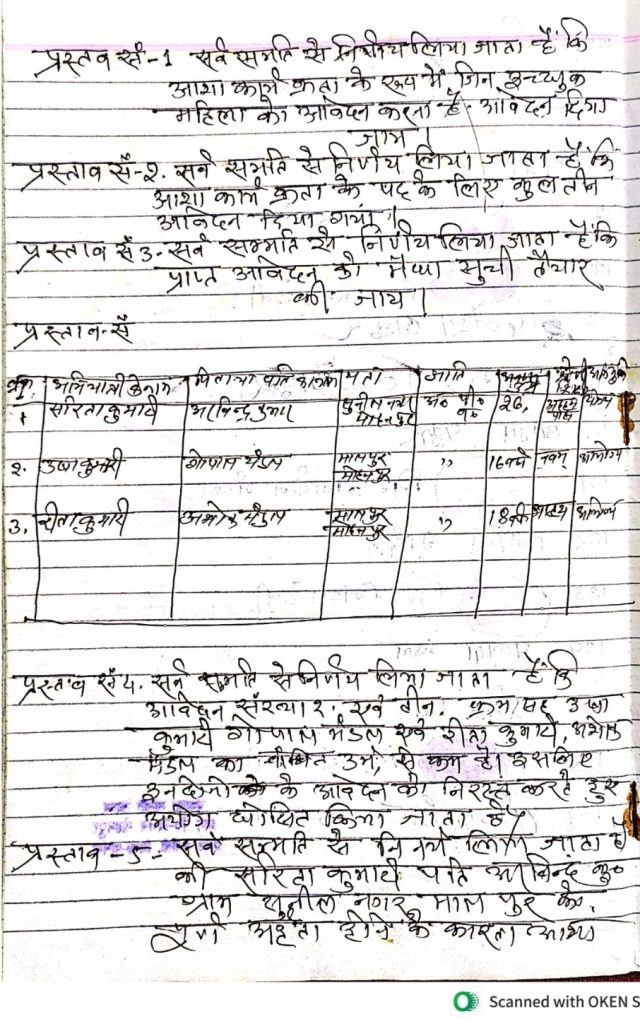 प्रस्तव सं-1 सर्व समति से निर्णय लिया जाता है कि
आशा कार्य क्रता के रूप में जिन इच्छुक
महिला को आवेदन करना है. आवेदन दिया
जाय।
प्रस्ताव सं-२. सर्व समति से निर्णय लिया जाता है कि
आशा कार्य क्रता के पद के लिए कुल तीन
आवेदन दिया गया।
प्रस्ताव सं 3- सर्व सम्मति से निर्णय लिया जाता है कि
प्राप्त आवेदन की मेधा सुची तैयार
की जाय।
प्रस्ताव-सं
क्र० अभियार्थी के नाम पिता या पति का नाम पता जाति
1 सरिता कुमारी अरविन्द कुमार 26,
२. उषा कुमारी गोपाल मंडल मालपुर मोहनपुर " 16 वर्ष नवम् अयोग्य
3. रीता कुमारी अशोक मंडल मालपुर मोहनपुर " 18 वर्ष
प्रस्तव सं 4. सर्व समति से निर्णय लिया जाता है कि
आवेदन संख्या २. एवं तीन. क्रम सह उषा
कुमारी गोपाल मंडल एवं रीता कुमारी, अशोक
मंडल का उम्र, से कम है। इसलिए
इन दोनो के आवेदन को निरस्त करते हुए
अयोग्य घोषित किया जाता है।
प्रस्ताव-5- सर्व सम्मति से निर्णय लिया जाता है
की सरिता कुमारी पति अरविन्द कु०
ग्राम सुनील नगर माल पुर के.
पूर्ण अर्हता होने के कारण आशा
Scanned with OKEN S